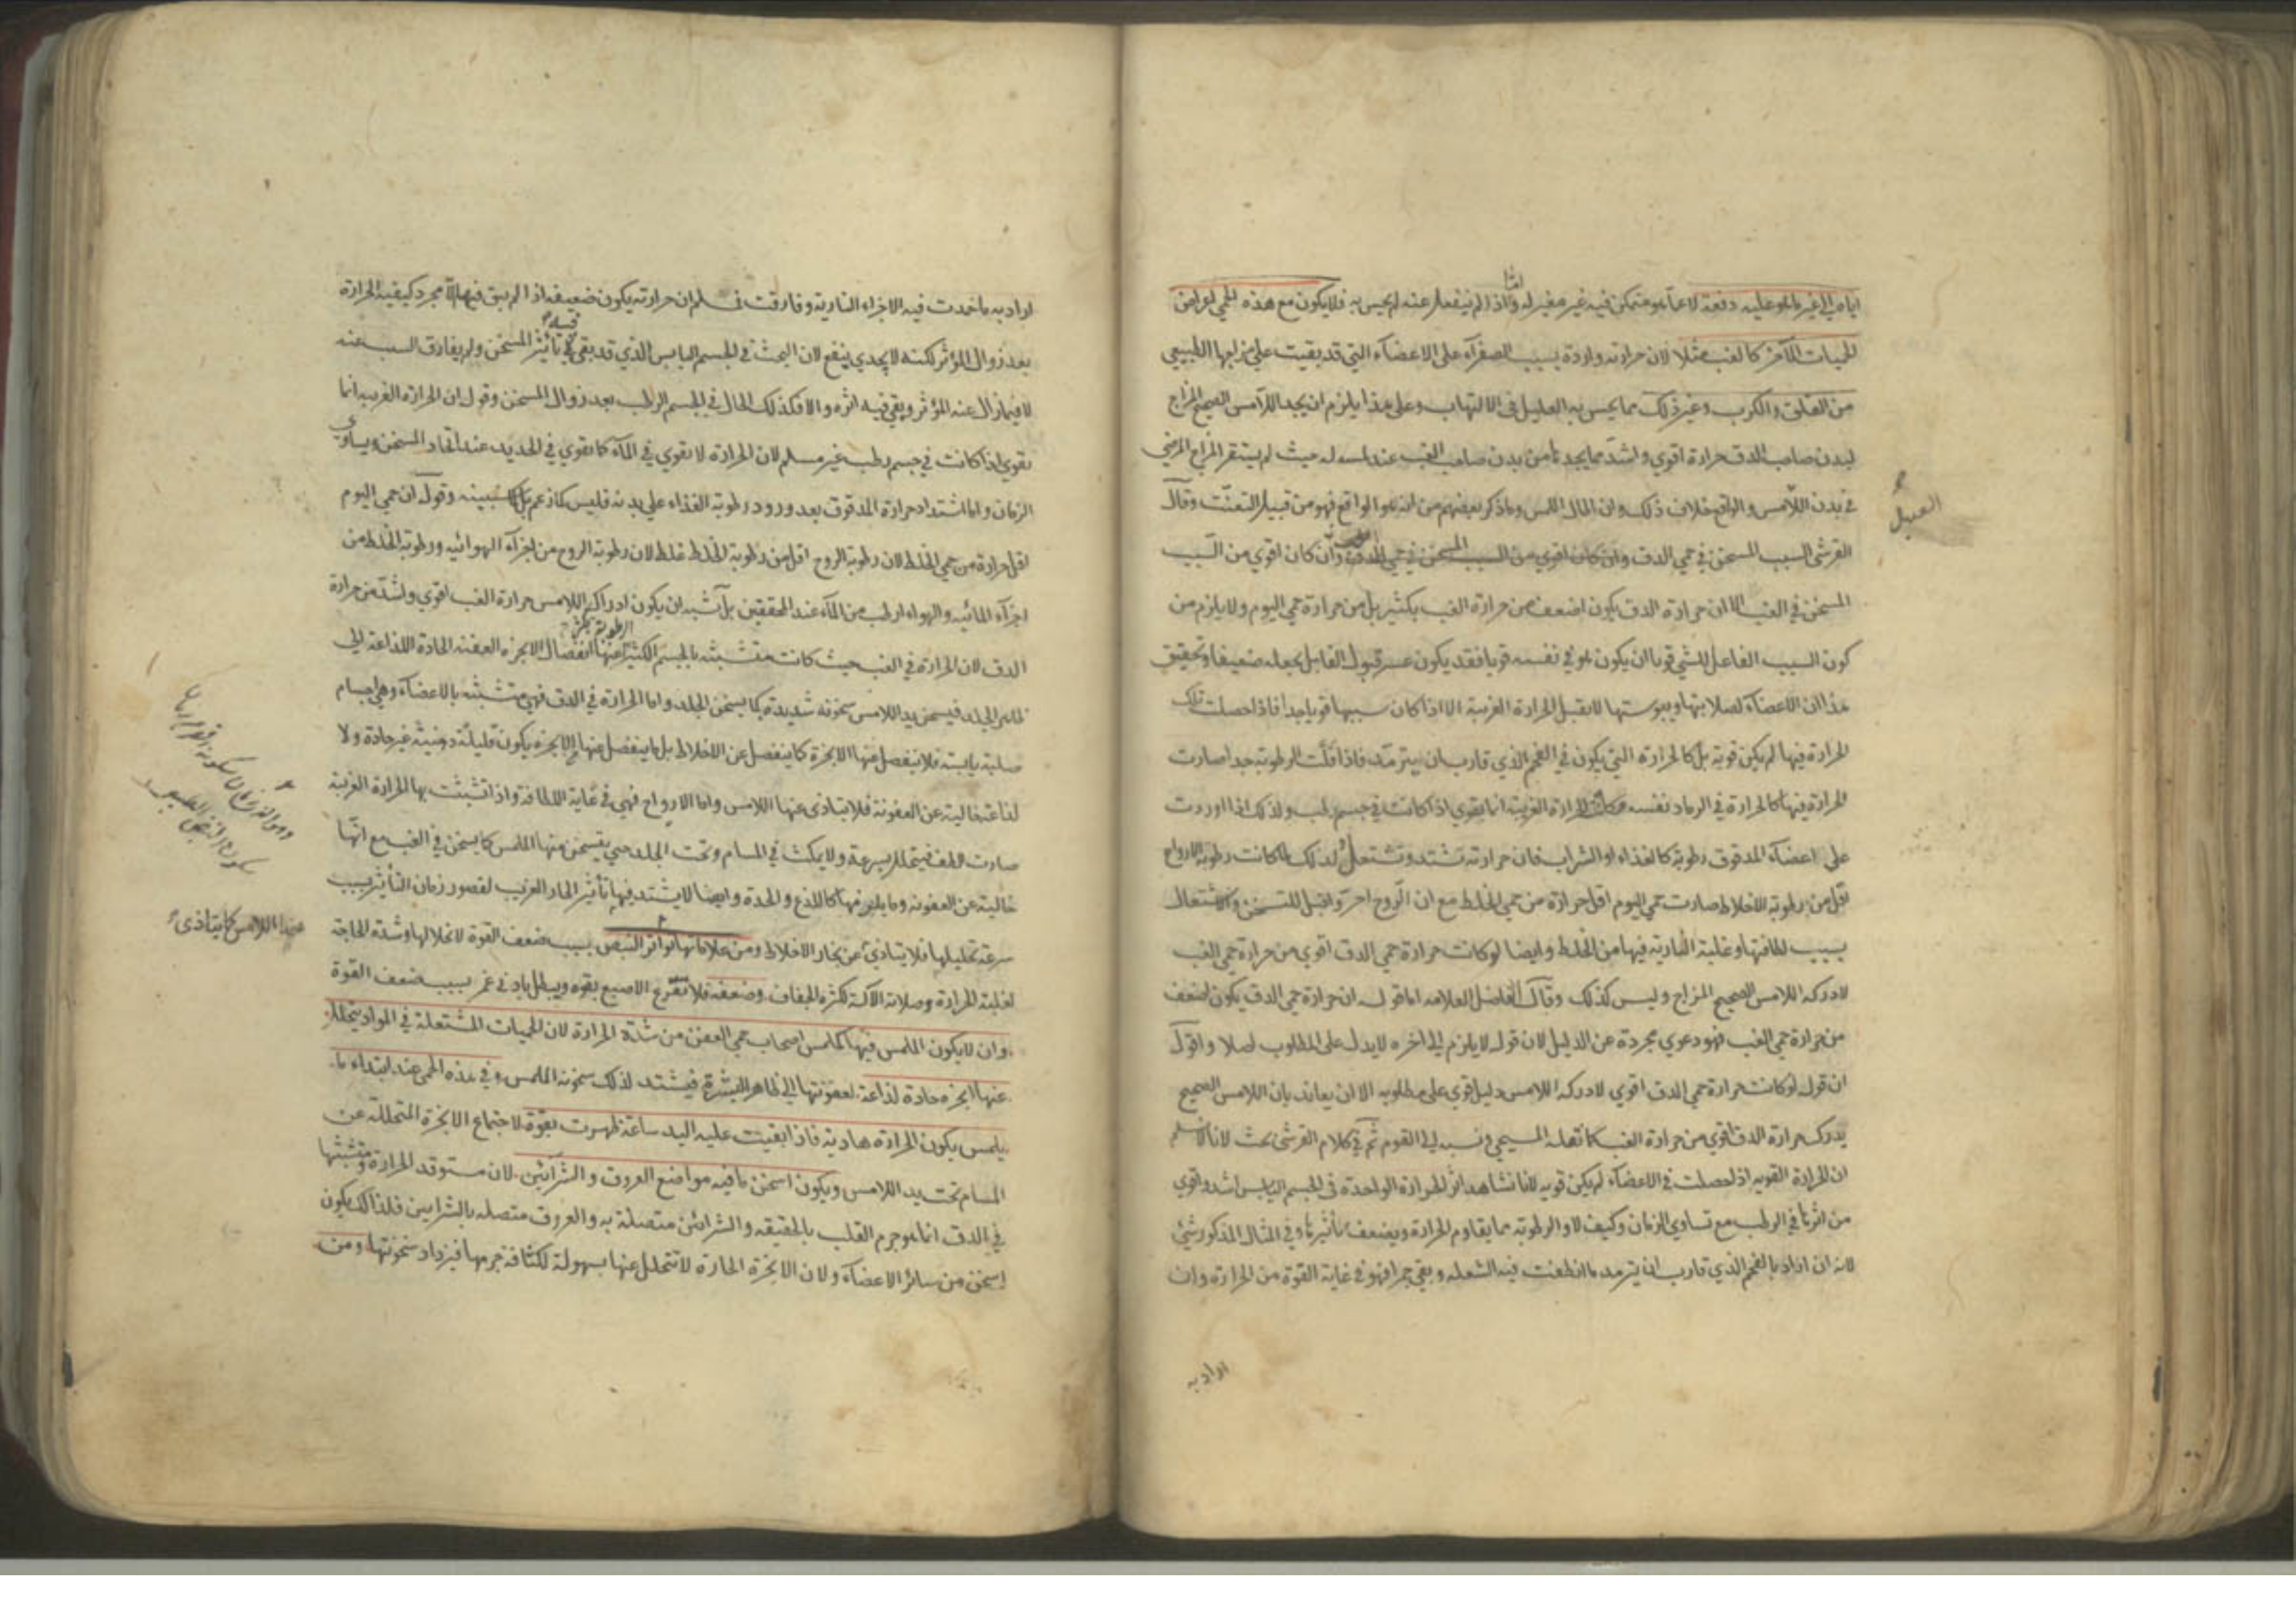 اياه الي غير ما هو عليه دفعة لا عما هو متمكن فيه غير مغير له وانما اذا لم ينفعل عنه لم يحس به فلا يكون مع هذه الحمي اعراض
الحميات الاخر كالغب مثلا لان حرارته واردة بسبب الصفراء على الاعضاء التي قد بقيت على مزاجها الطبيعي
من القلق والكرب وغير ذلك مما يحس به العليل في الالتهاب وعلى هذا يلزم ان يجد اللامس الصحيح المزاج
لبدن صاحب الدق حرارة اقوي واشد مما يجدها من بدن صاحب الغب عند لمسه له حيث لم يستقر المزاج المرضي
في بدن اللامس والواقع خلاف ذلك وما ذكر بعضهم من انه هو الواقع فهو من قبيل التعنت وقال
القرشي السبب المسخن في حمي الدق وان كان اقوي من السبب
المسخن في الغب الا ان حرارة الدق يكون اضعف من حرارة الغب بكثير بل من حرارة حمي اليوم ولا يلزم من
كون السبب الفاعل للشي قويا ان يكون هو في نفسه قويا فقد يكون عسر قبول القابل يجعله ضعيفا وتحقيق
هذا ان الاعضاء لصلابتها ويبوستها لا يقبل الحرارة الغريبة الا اذا كان سببها قويا جدا فاذا حصلت تلك
الحرارة فيها لم يكن قوية بل كالحرارة التي يكون في الفحم الذي قارب ان يترمد فاذا قلت الرطوبة جدا صارت
الحرارة فيها كالحرارة في الرماد نفسه الحرارة الغريبة انما يقوي اذا كانت في جسم رطب ولذلك اذا اوردت
على اعضاء المدقوق رطوبة كالغذاء او الشراب فان حرارته تشتد وتشتعل ولذلك لما كانت رطوبة الارواح
اقل من رطوبة الاخلاط صارت حمي اليوم اقل حرارة من حمي الخلط مع ان الروح احر واقبل للتسخن والاشتعال
بسبب لطافتها وغلبة النارية فيها من الخلط وايضا لو كانت حرارة حمي الدق اقوي من حرارة حمي الغب
لادركه اللامس الصحيح المزاج وليس كذلك وقال الفاضل العلامه اما قوله ان حرارة حمي الدق يكون اضعف
من حرارة حمي الغب فهو دعوي مجردة عن الدليل لان قوله لا يلزم الى اخره لا يدل على المطلوب اصلا واقول
ان قوله لو كانت حرارة حمي الدق اقوي لادركه اللامس دليل قوي على مطلوبه الا ان يعاند بان اللامس الصحيح
يدرك حرارة الدق اقوي من حرارة الغب كما نقله المسيحي ونسبه الى القوم ثم في كلام القرشي بحث لانا لا نسلم
ان الحرارة القويه اذا حصلت في الاعضاء لم يكن قويه لانا نشاهد اثر الحرارة الواحدة في الجسم اليابس اشد واقوي
من اثرها في الرطب مع تساوي الزمان وكيف لا والرطوبة مما يقاوم الحرارة ويضعف تأثيرها وفي المثال المذكور شيئ
لانه ان اراد بالفحم الذي قارب ان يترمد ما انطفت فيه الشعله وبقي جمرا فهو في غاية القوة من الحرارة وان
اراد به
اراد به ما خمدت فيه الاجزاء النارية وفارقت فمسلم ان حرارته يكون ضعيفه اذ لم يبق فيها الا مجرد كيفية الحرارة
بعد زوال المؤثر لكنه لا يجدي بنفع لان البحث في الجسم اليابس الذي قد بقي فيه تأثير المسخن ولم يفارق السبب عنه
لا فيما زال عنه المؤثر وبقي فيه اثره والا فكذلك الحال في الجسم الرطب بعد زوال المسخن وقوله ان الحرارة الغريبة انما
يقوي اذا كانت في جسم رطب غير مسلم لان الحرارة لا تقوي في الماء كما تقوي في الحديد عند اتحاد المسخن وتساوي
الزمان واما اشتداد حرارة المدقوق بعد ورود رطوبة الغذاء علي بدنه فليس كما زعم بل لما سنبينه وقوله ان حمي اليوم
اقل حرارة من حمي الخلط لان رطوبة الروح اقل من رطوبة الخلط غلط لان رطوبة الروح من اجزاء الهوائيه ورطوبة الخلط من
اجزاء المائيه والهواء ارطب من الماء عند المحققين بل اشبه ان يكون ادراك اللامس حرارة الغب اقوي واشد من حرارة
الدق لان الحرارة في الغب حيث كانت متشبثه بالجسم الكثير الرطوبة يكثر عنها انفصال الابخرة العفنه الحادة اللذاعه الي
ظاهر الجلد فيسخن يد اللامس سخونه شديدة كما يسخن الجلد واما الحرارة في الدق فهي متشبثه بالاعضاء وهي اجسام
صلبة يابسة فلا ينفصل عنها الابخرة كما ينفصل عن الاخلاط بل ما ينفصل عنها من الابخرة يكون قليلة دهنية غير حادة ولا
لذاعة خالية عن العفونة فلا يتاذي عنها اللامس واما الارواح فهي في غاية اللطافة واذا تشبثت بها الحرارة الغريبة
صارت الطف فيتحلل بسرعة ولا يمكث في المسام وتحت الجلد حتي يتسخن منها الملمس كما يسخن في الغب مع انها
خالية عن العفونه وما يلزمها كاللذع والحدة وايضا لا يشتد فيها تأثير الحار الغريب لقصور زمان التأثير بسبب
سرعة تحليلها فلا يتاذي عن بخار الاخلاط ومن علاماتها تواتر النبض بسبب ضعف القوة لانحلالها وشدة الحاجة
لغلبة الحرارة وصلابة الالة لكثرة الجفاف وضعفه فلا يقرع الاصبع بقوة ويبطل بادني غمز بسبب ضعف القوة
وان لا يكون الملمس فيها كملمس اصحاب حمي العفن من شدة الحرارة لان الحميات المشتعلة في المواد يتحلل
عنها ابخرة حادة لذاعة لعفونتها الي ظاهر البشرة فيشتد لذلك سخونة الملمس وفي هذه الحمي عند ابتداء ما
يلمس يكون الحرارة هادية فاذا ابقيت عليه اليد ساعة ظهرت بقوة لاجتماع الابخرة المتحللة عن
المسام تحت يد اللامس ويكون اسخن ما فيه مواضع العروق والشرائين لان مستوقد الحرارة ومتشبثها
في الدق انما هو جرم القلب بالحقيقه والشرائين متصلة به والعروق متصله بالشرايين فلذلك يكون
اسخن من سائر الاعضاء ولان الابخرة الحارة لا تتحلل عنها بسهولة لكثافة جرمها فيزداد سخونتها ومن
عنها اللامس كما يتاذي